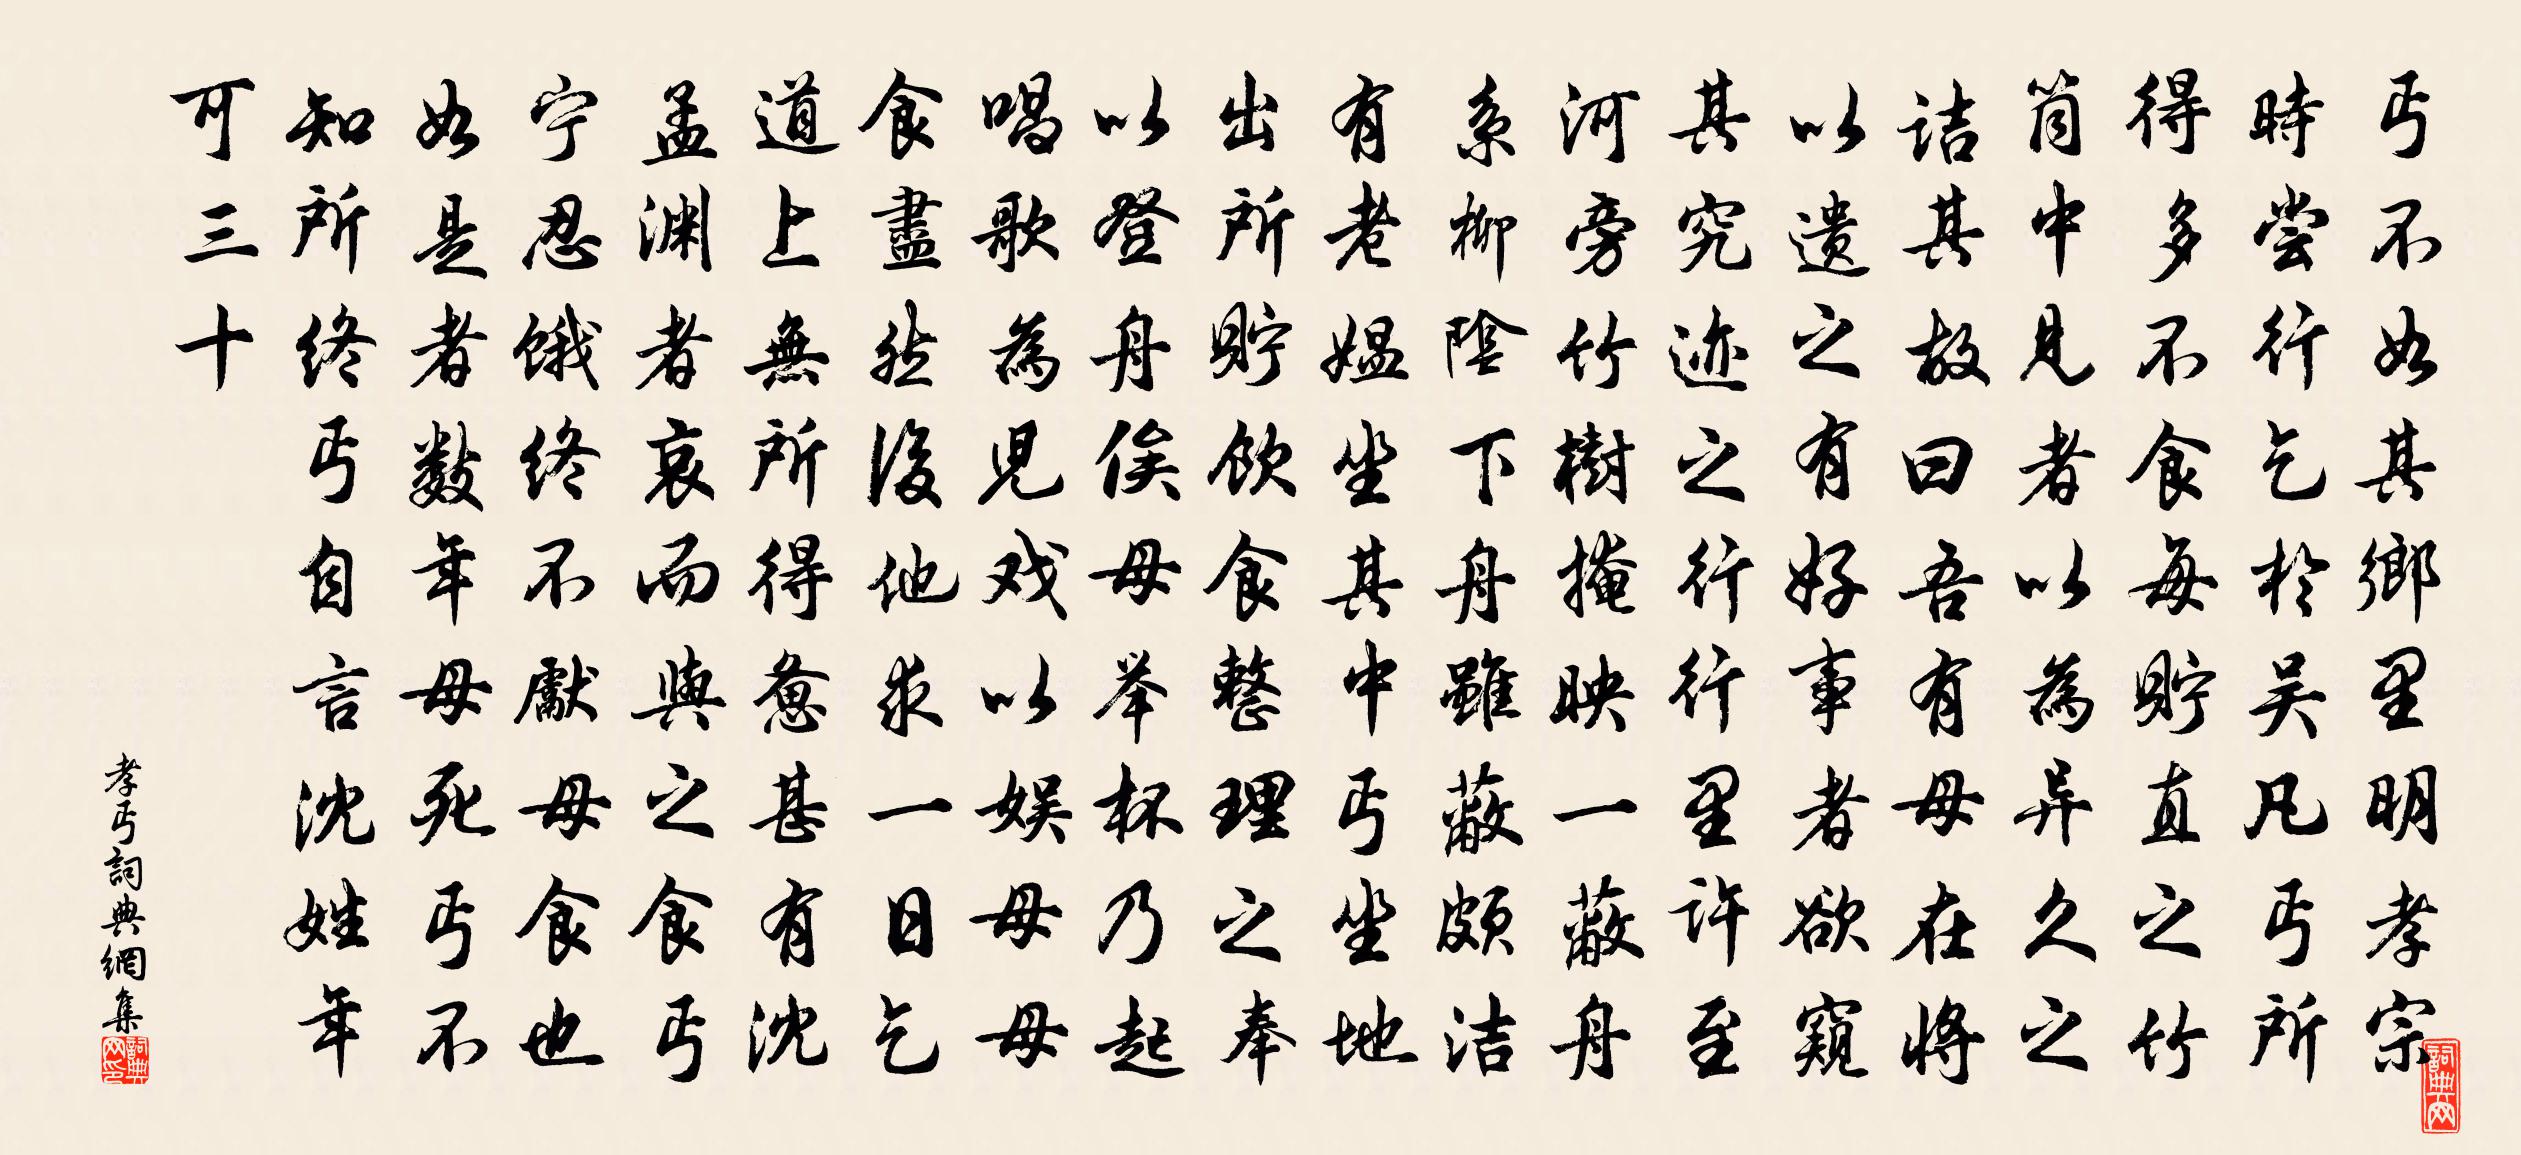 丐不如其鄉里明孝宗
時尝行乞於吴凡丐所
得多不食每貯直之竹
筒中見者以為异久之
诘其故曰吾有母在将
以遗之有好事者欲窺
其究迹之行行里許至
河旁竹樹掩映一蔽舟
系柳陰下舟雖蔽頗洁
有老媪坐其中丐坐地
出所貯飲食整理之奉
以登舟俟母举杯乃起
唱歌為児戏以娱母母
食盡然後他求一日乞
道上無所得惫甚有沈
孟渊者哀而與之食丐
宁忍饿终不獻母食也
如是者数年母死丐不
知所终丐自言沈姓年
可三十
孝丐詞典網集
詞典网印
詞典网